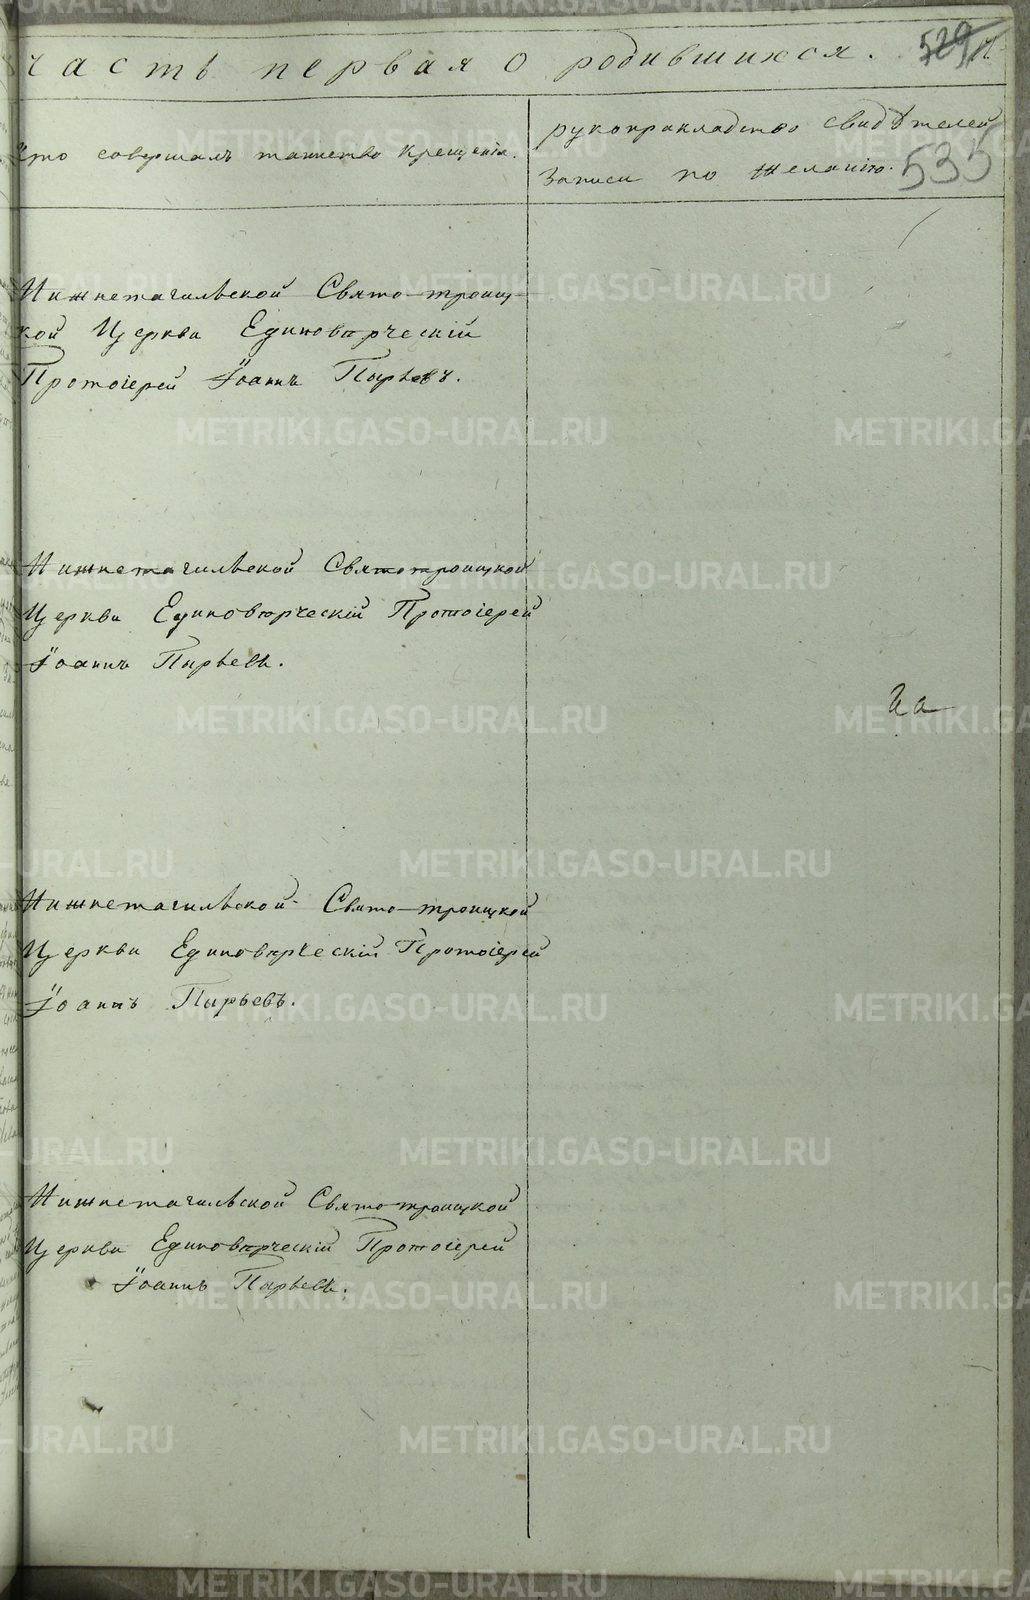 часть первая о родившихся. 529
535
кто совершалъ таинство крещенія.
рукоприкладство свидѣтелей
записи по желанію.
Нижнетагильской Свято-троиц-
кой Церкви Единовѣрческій
Протоіерей Іоаннъ Пырьевъ.
Нижнетагильской Святотроицкой
Церкви Единовѣрческій Протоіерей
Іоаннъ Пырьевъ.
Нижнетагильской Свято-троицкой
Церкви Единовѣрческій Протоіерей
Іоаннъ Пырьевъ.
Нижнетагильской Святотроицкой
Церкви Единовѣрческій Протоіерей
Іоаннъ Пырьевъ.
METRIKI.GASO-URAL.RU